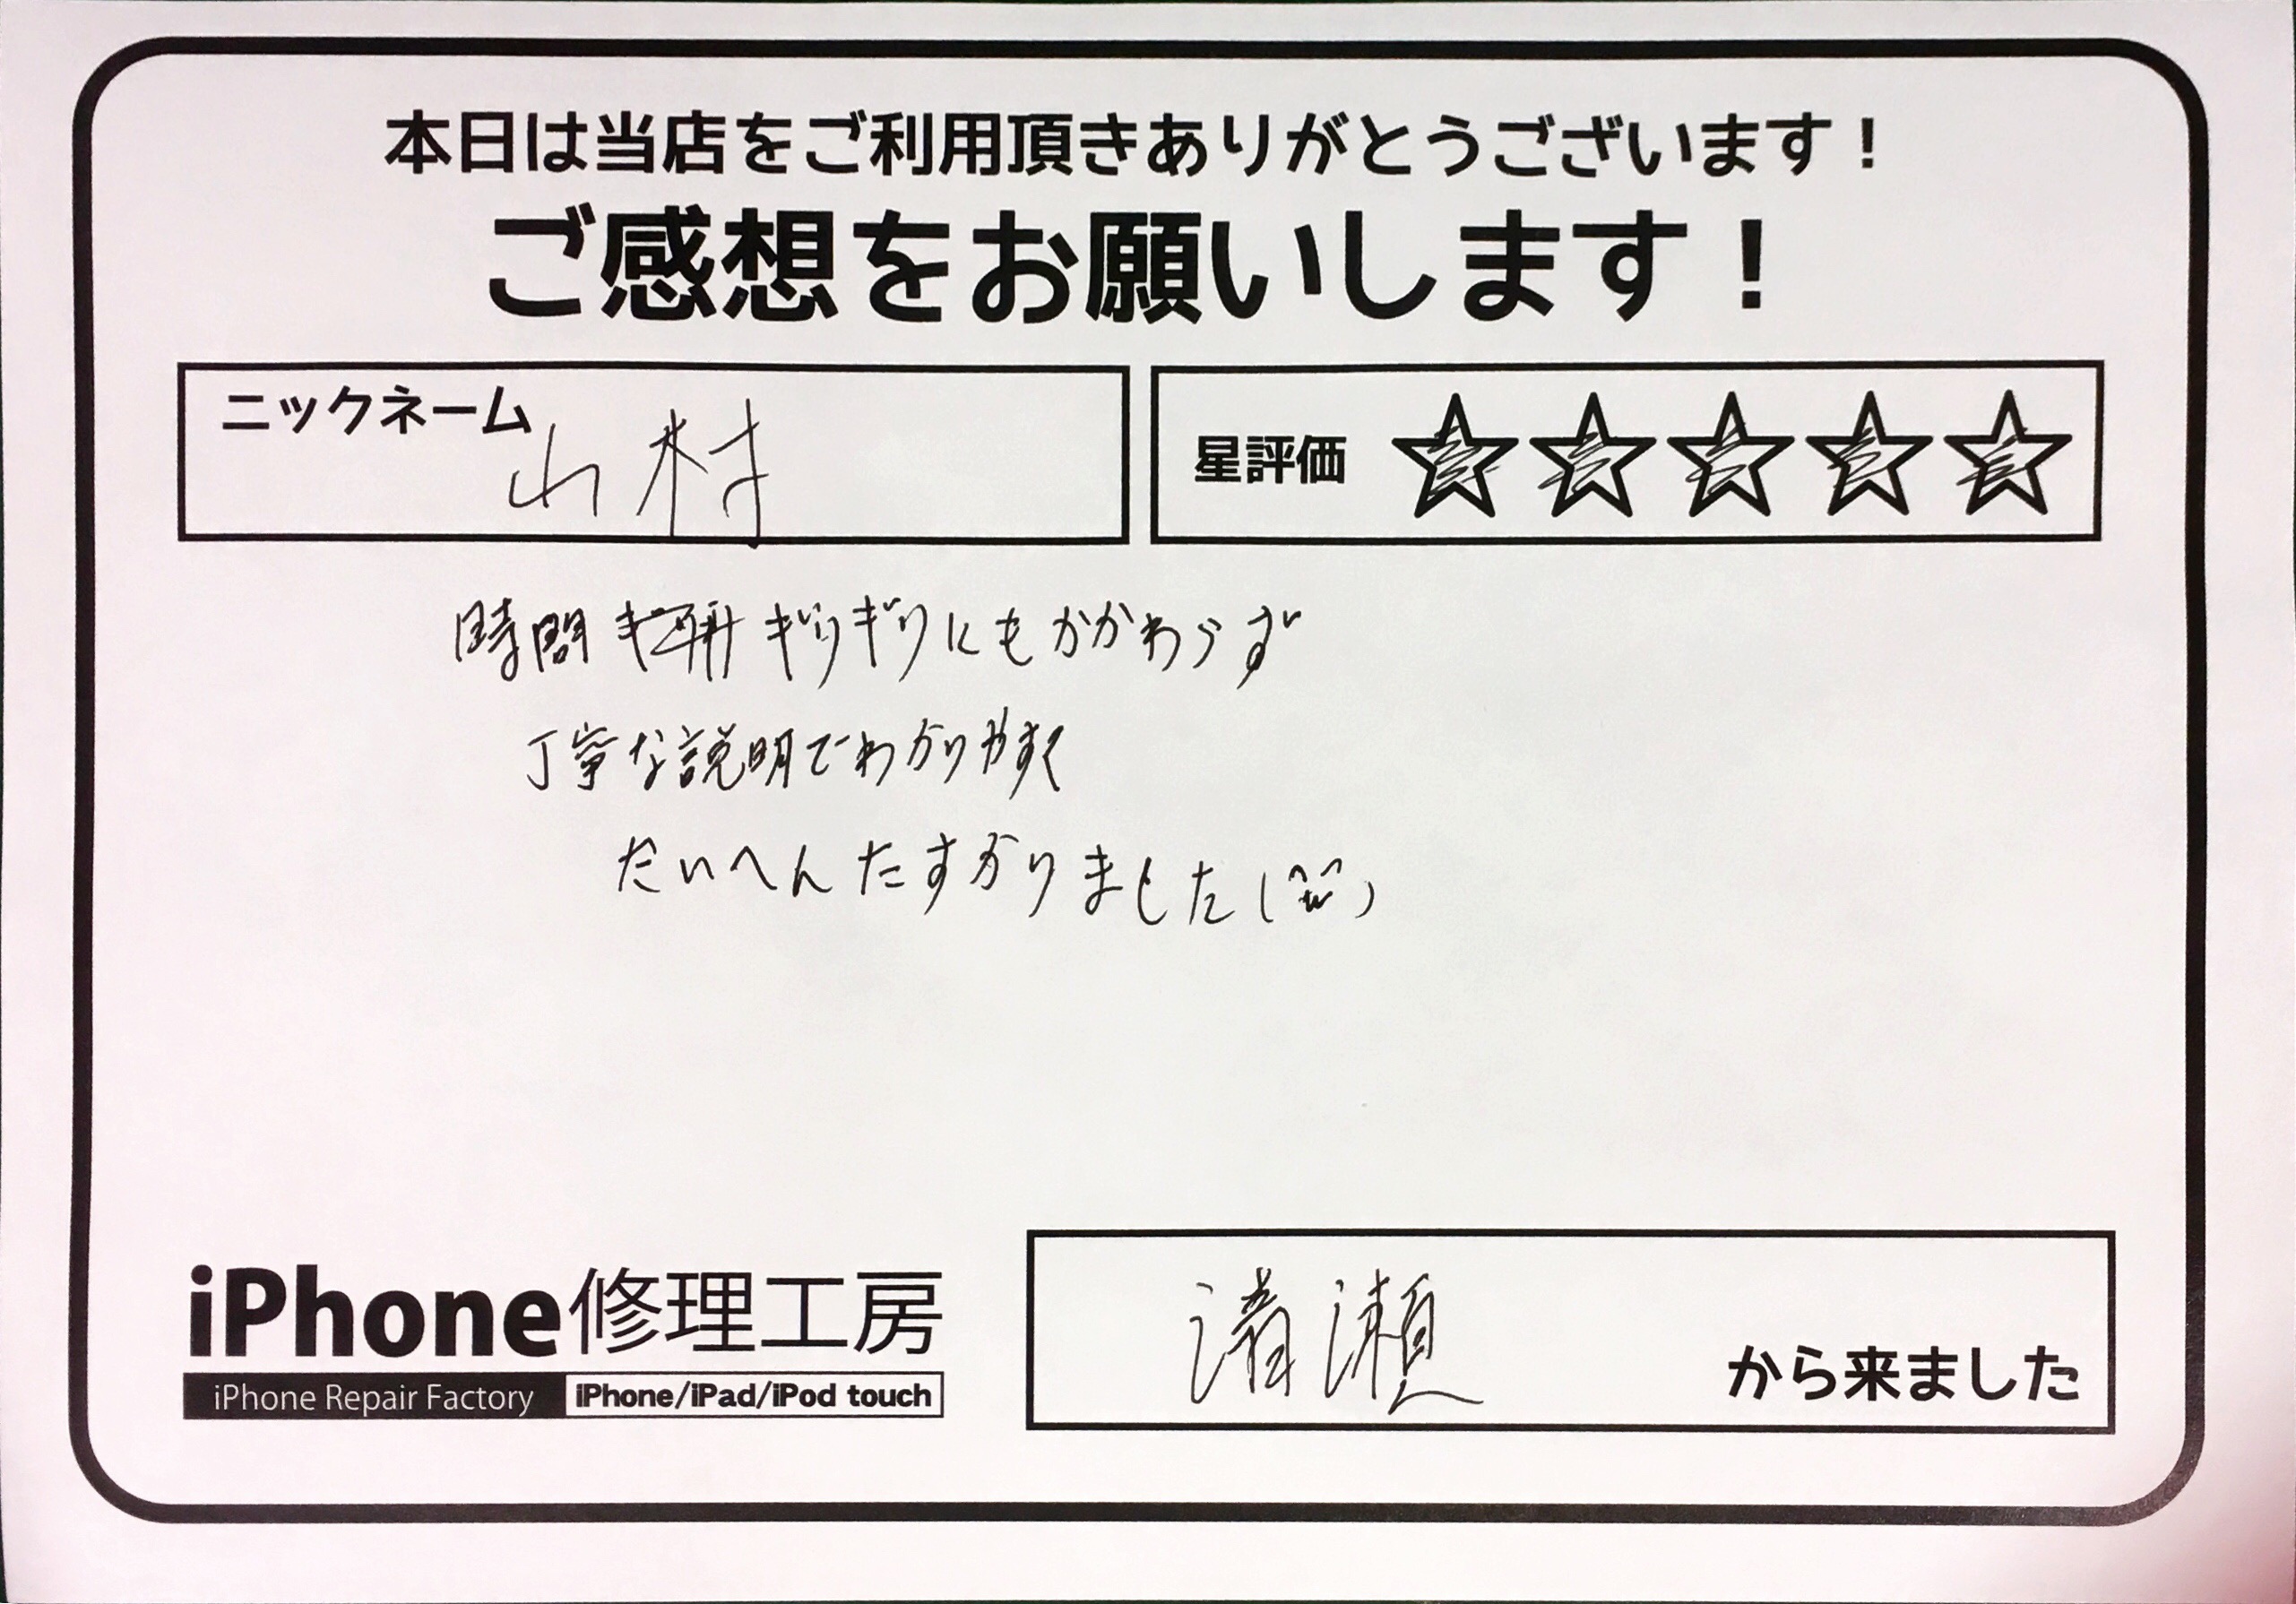 本日は当店をご利用頂きありがとうございます！
ご感想をお願いします！
ニックネーム 山村
星評価 ☆☆☆☆☆
時間ギリギリにもかかわらず
丁寧な説明でわかりやすく
たいへんたすかりました(^w^)
iPhone修理工房
iPhone Repair Factory iPhone/iPad/iPod touch
清瀬 から来ました